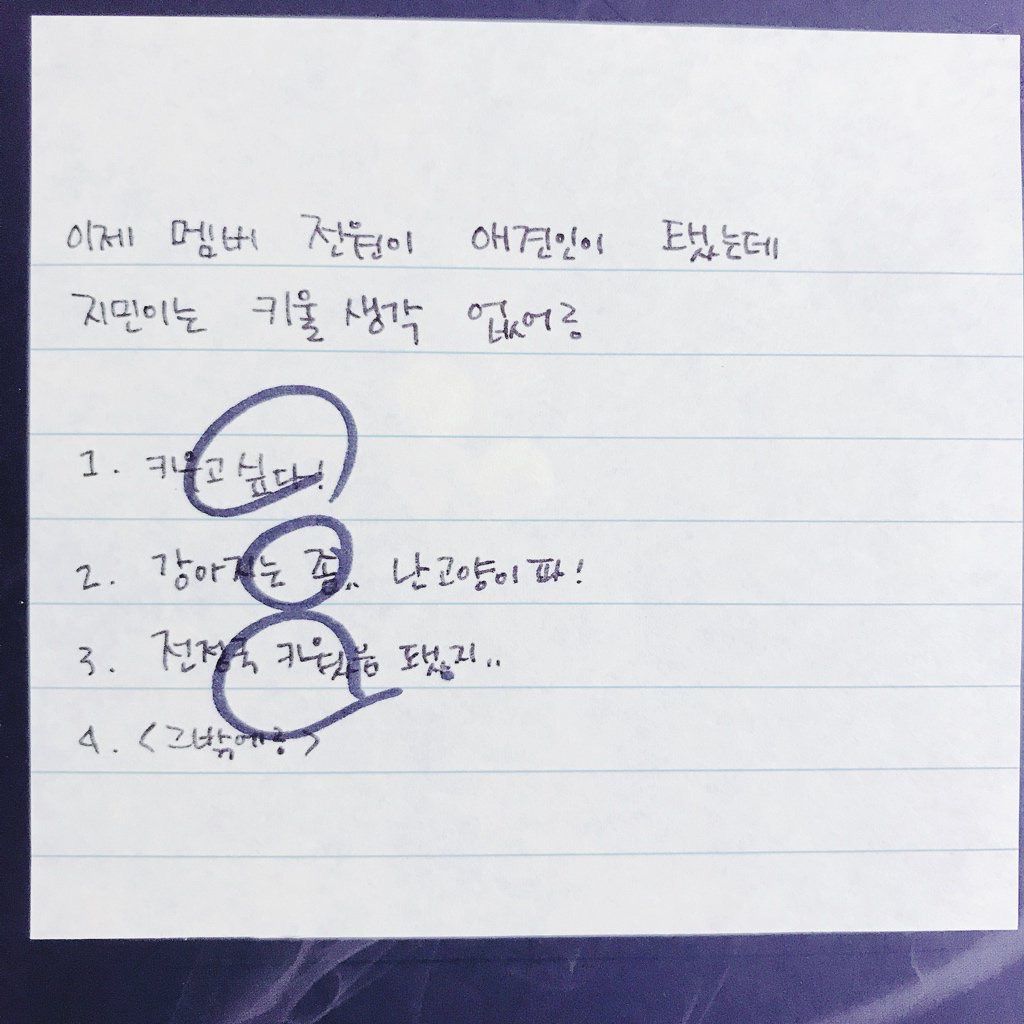 이제 멤버 전원이 애견인이 됐는데
지민이는 키울 생각 없어용
1. 키우고싶다!
2. 강아지는 좀.. 난 고양이 파!
3. 전정국 키웠음 됐지..
4. <그밖에용>